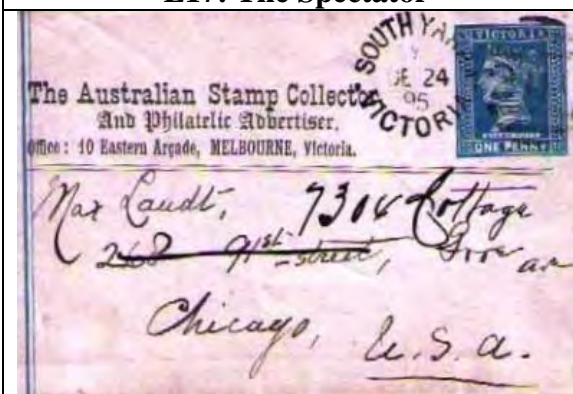 E17: The Spectator
SOUTH YAR
DE 24
95
VICTORIA
VICTORIA
ONE PENNY
The Australian Stamp Collector
And Philatelic Advertiser.
Office: 10 Eastern Arcade, MELBOURNE, Victoria.
Max Laudt, 7304 Cottage
268 91st street, Grove av
Chicago, U.S.A.